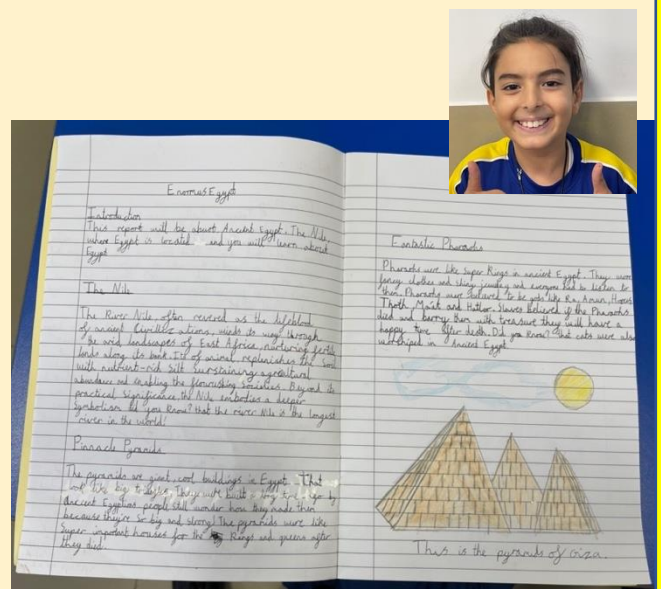 Enormus Egypt
Introduction
This report will be about Ancient Egypt. The Nile,
where Egypt is located and you will learn about
Egypt
The Nile
The River Nile, often revered as the lifeblood
of ancient Civilizations, winds its way through
the arid landscapes of East Africa, nurturing fertile
lands along its bank. Its annual replenishes the Soil
with nutrient-rich Silt Sustaining agricultural
abundance and enabling the flourishing Societies. Beyond its
practical Significance, the Nile embodies a deeper
Symbolism. Did you Know? that the river Nile is the longest
river in the world!
Pinnacle Pyramids
The pyramids are giant, cool buildings in Egypt. That
look like big triangles. They were built a long time ago by
Ancient Egyptions people still wonder how they made them
because they're so big and strong! The pyramids were like
Super important houses for the Kings and queens after
they died.
Fantastic Pharaohs
Pharaohs were like Super Kings in ancient Egypt. They wore
fancy clothes and shiny jewelry and everyone had to listen to
them. Pharaohs were believed to be gods like Ra, Amun, Horus
Thoth, Ma'at and Hathor. Slaves Believed if the Pharaohs
died and burry them with treasure they will have a
happy time after death. Did you Know? that cats were also
worshiped in Ancient Egypt
This is the pyramids of Giza.